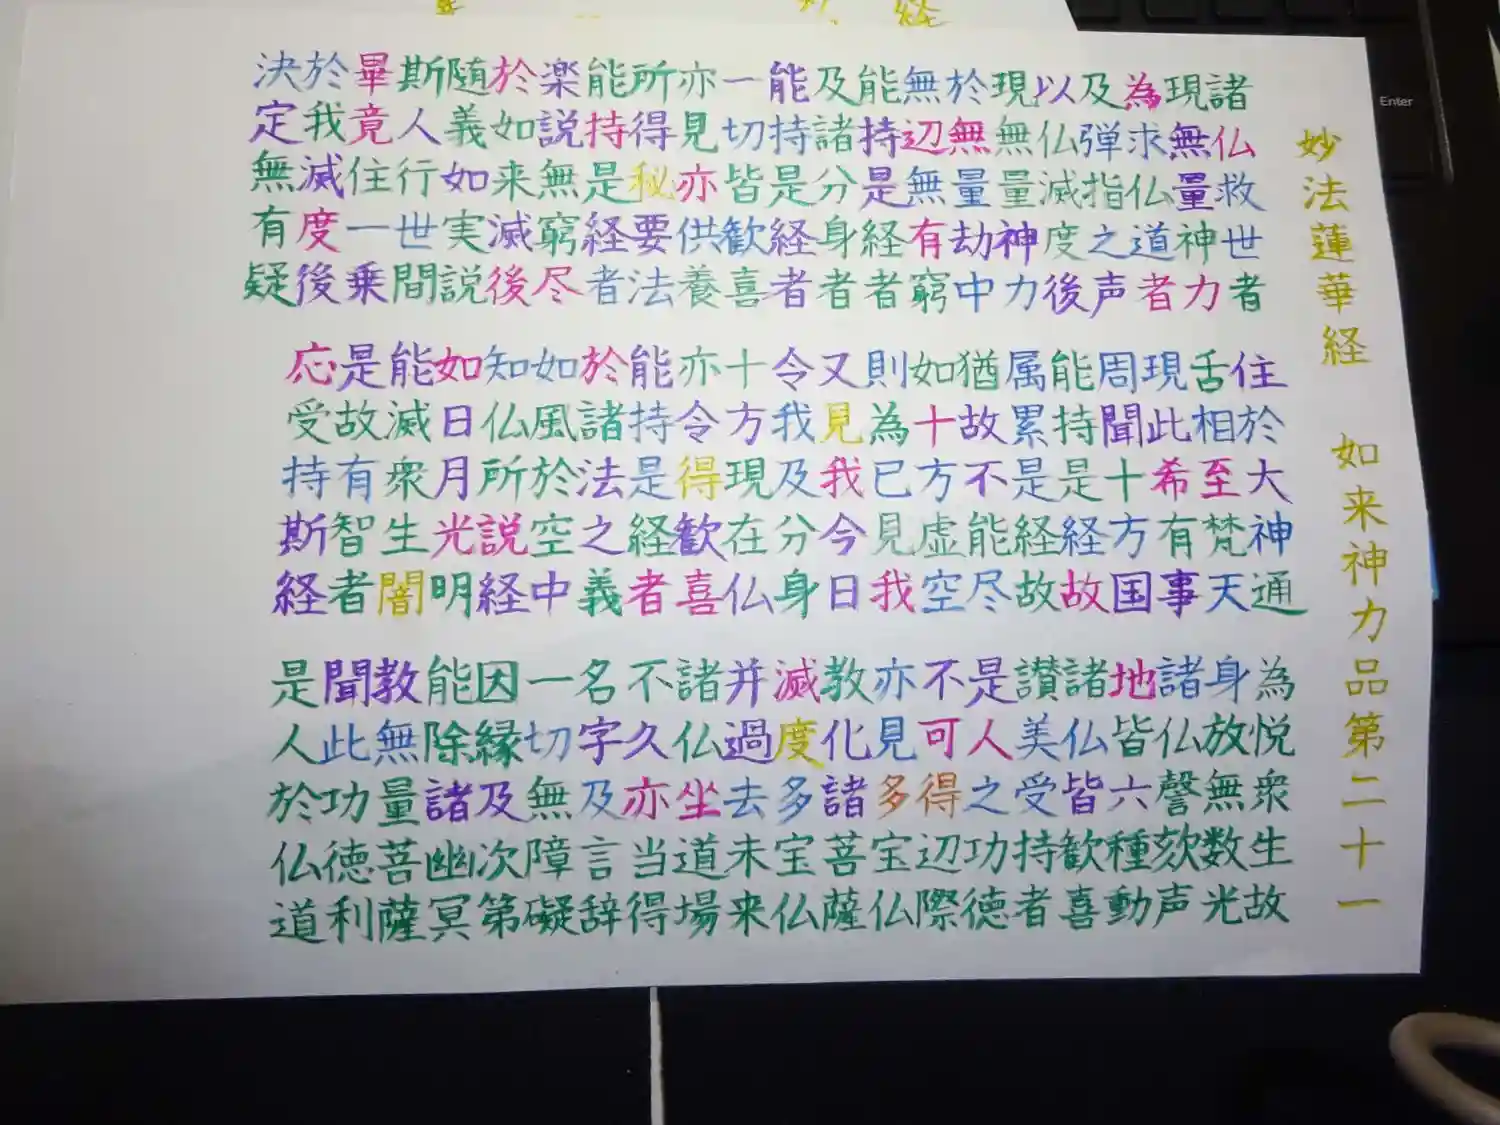 妙法蓮華経　如来神力品第二十一
諸仏救世者　住於大神通　為悦衆生故
現無量神力　舌相至梵天　身放無数光
為求仏道者　現此希有事　諸仏謦欬声
及弾指之声　周聞十方国　地皆六種動
以仏滅度後　能持是経故　諸仏皆歓喜
現無量神力　属累是経故　讃美受持者
於無量劫中　猶故不能尽　是人之功徳
無辺無有窮　如十方虚空　不可得辺際
能持是経者　則為已見我　亦見多宝仏
及諸分身者　又見我今日　教化諸菩薩
能持是経者　令我及分身　滅度多宝仏
一切皆歓喜　十方現在仏　并過去未来
亦見亦供養　亦令得歓喜　諸仏坐道場
所得秘要法　能持是経者　不久亦当得
能持是経者　於諸法之義　名字及言辞
楽説無窮尽　如風於空中　一切無障礙
於如来滅後　知仏所説経　因縁及次第
随義如実説　如日月光明　能除諸幽冥
斯人行世間　能滅衆生闇　教無量菩薩
畢竟住一乗　是故有智者　聞此功徳利
於我滅度後　応受持斯経　是人於仏道
決定無有疑
Enter